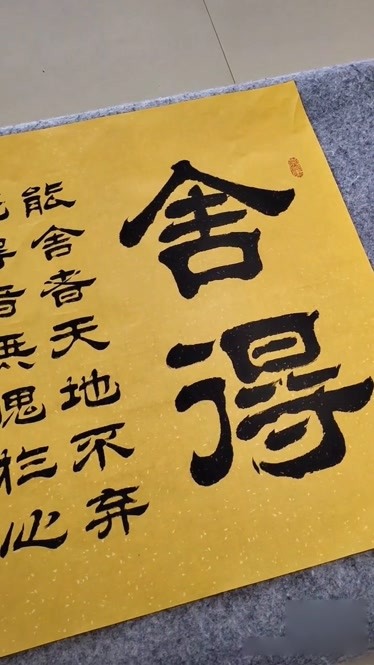 舍得
能舍者天地不弃
能得者無愧於心